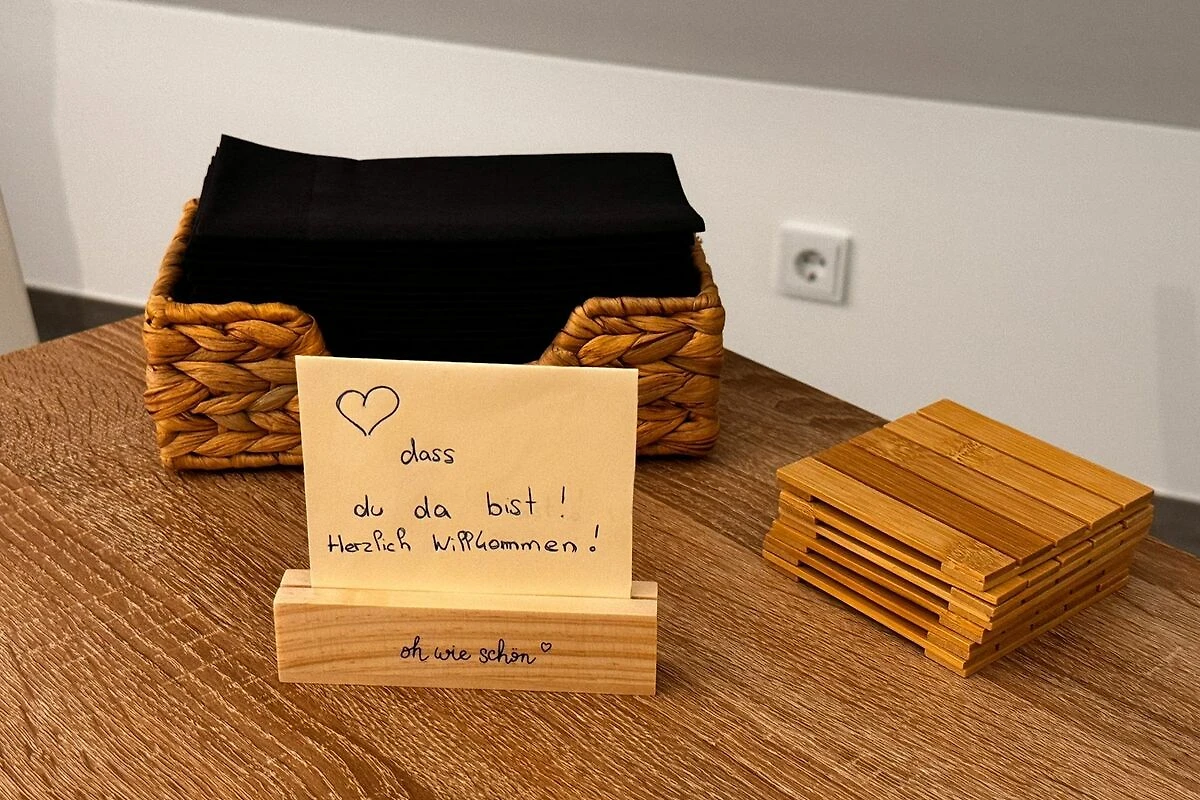 dass
du da bist!
Herzlich Willkommen!
oh wie schön